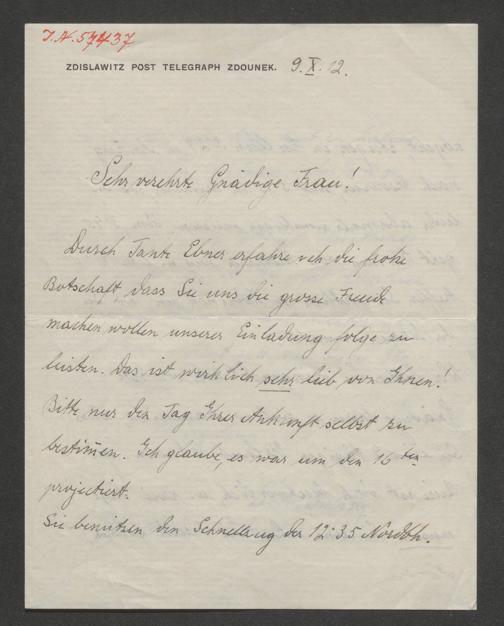 I.N. 57437
ZDISLAWITZ POST TELEGRAPH ZDOUNEK. 9.X.12.
Sehr verehrte Gnädige Frau!
Durch Tante Ebner erfahre ich die frohe
Botschaft, dass Sie uns die grosse Freude
machen wollen unserer Einladung folge zu
leisten. Das ist wirklich sehr lieb von Ihnen!
Bitte nur den Tag Ihrer Ankunft selbst zu
bestim̄en. Ich glaube, es war um den 16ten
projectiert.
Sie benützen den Schnellzug der 12·35 Nordbh.